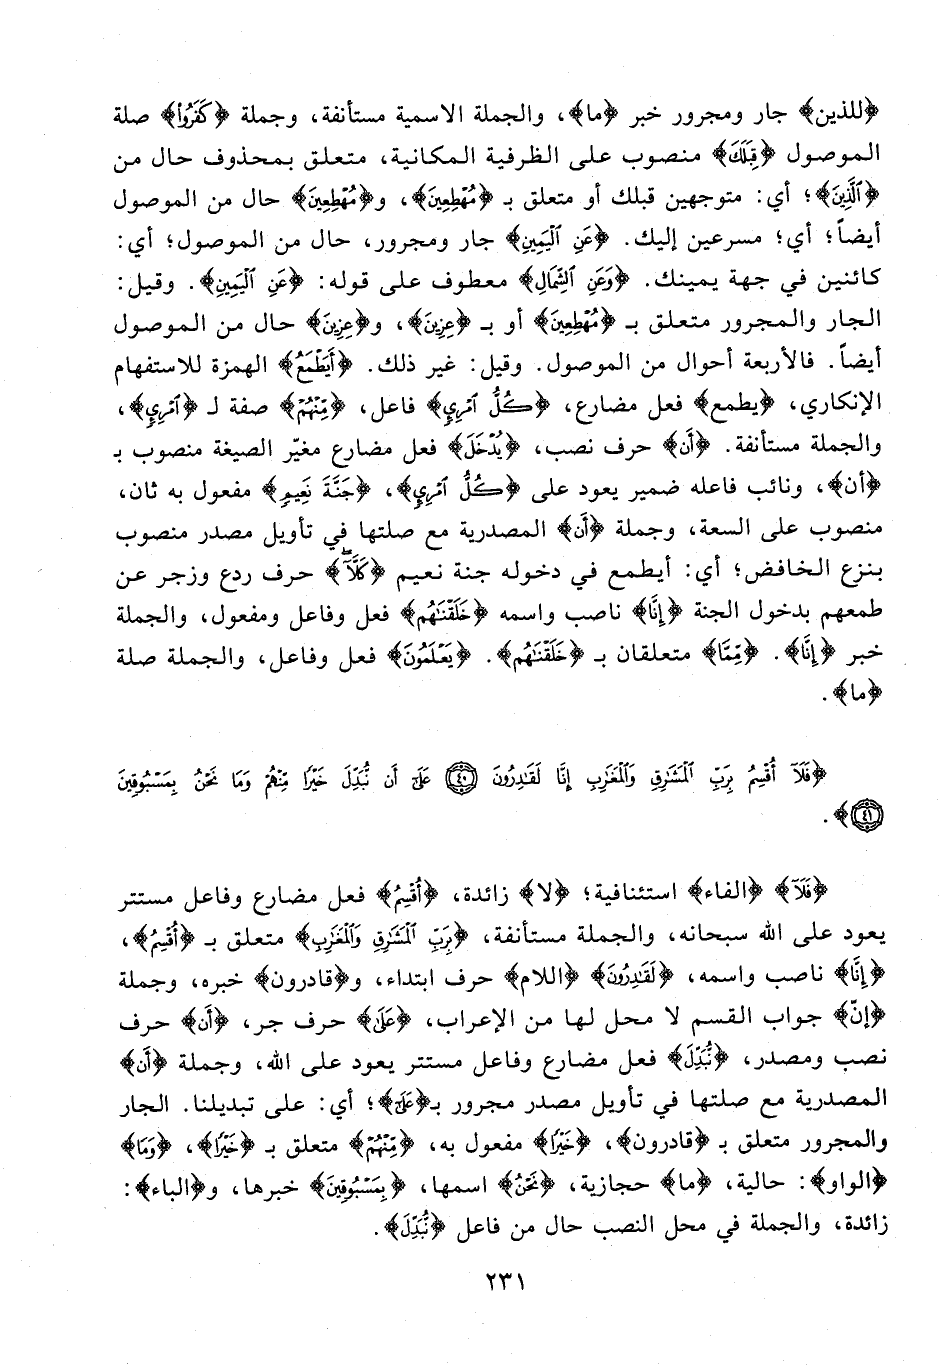 ﴿للذين﴾ جار ومجرور خبر ﴿ما﴾، والجملة الاسمية مستأنفة، وجملة ﴿كَفَرُوا﴾ صلة
الموصول ﴿قِبَلَكَ﴾ منصوب على الظرفية المكانية، متعلق بمحذوف حال من
﴿الَّذِينَ﴾؛ أي: متوجهين قبلك أو متعلق بـ ﴿مُهْطِعِينَ﴾، و﴿مُهْطِعِينَ﴾ حال من الموصول
أيضاً؛ أي؛ مسرعين إليك. ﴿عَنِ ٱلْيَمِينِ﴾ جار ومجرور، حال من الموصول؛ أي:
كائنين في جهة يمينك. ﴿وَعَنِ ٱلشِّمَالِ﴾ معطوف على قوله: ﴿عَنِ ٱلْيَمِينِ﴾. وقيل:
الجار والمجرور متعلق بـ ﴿مُهْطِعِينَ﴾ أو بـ ﴿عِزِينَ﴾، و﴿عِزِينَ﴾ حال من الموصول
أيضاً. فالأربعة أحوال من الموصول. وقيل: غير ذلك. ﴿أَيَطْمَعُ﴾ الهمزة للاستفهام
الإنكاري، ﴿يطمع﴾ فعل مضارع، ﴿كُلُّ ٱمْرِيٍٕ﴾ فاعل، ﴿مِّنْهُمْ﴾ صفة لـ ﴿ٱمْرِيٍٕ﴾،
والجملة مستأنفة. ﴿أَن﴾ حرف نصب، ﴿يُدْخَلَ﴾ فعل مضارع مغيّر الصيغة منصوب بـ
﴿أن﴾، ونائب فاعله ضمير يعود على ﴿كُلُّ ٱمْرِيٍٕ﴾، ﴿جَنَّةَ نَعِيمٍ﴾ مفعول به ثان،
منصوب على السعة، وجملة ﴿أَن﴾ المصدرية مع صلتها في تأويل مصدر منصوب
بنزع الخافض؛ أي: أيطمع في دخوله جنة نعيم ﴿كَلَّآۖ﴾ حرف ردع وزجر عن
طمعهم بدخول الجنة ﴿إِنَّا﴾ ناصب واسمه ﴿خَلَقْنَٰهُم﴾ فعل وفاعل ومفعول، والجملة
خبر ﴿إِنَّا﴾. ﴿مِّمَّا﴾ متعلقان بـ ﴿خَلَقْنَٰهُم﴾. ﴿يَعْلَمُونَ﴾ فعل وفاعل، والجملة صلة
﴿ما﴾.
﴿فَلَآ أُقْسِمُ بِرَبِّ ٱلْمَشَٰرِقِ وَٱلْمَغَٰرِبِ إِنَّا لَقَٰدِرُونَ ٤٠ عَلَىٰٓ أَن نُّبَدِّلَ خَيْرًا مِّنْهُمْ وَمَا نَحْنُ بِمَسْبُوقِينَ
٤١﴾.
﴿فَلَآ﴾ ﴿الفاء﴾ استئنافية؛ ﴿لا﴾ زائدة، ﴿أُقْسِمُ﴾ فعل مضارع وفاعل مستتر
يعود على الله سبحانه، والجملة مستأنفة، ﴿بِرَبِّ ٱلْمَشَٰرِقِ وَٱلْمَغَٰرِبِ﴾ متعلق بـ ﴿أُقْسِمُ﴾،
﴿إِنَّا﴾ ناصب واسمه، ﴿لَقَٰدِرُونَ﴾ ﴿اللام﴾ حرف ابتداء، و﴿قادرون﴾ خبره، وجملة
﴿إنّ﴾ جواب القسم لا محل لها من الإعراب، ﴿عَلَىٰ﴾ حرف جر، ﴿أَن﴾ حرف
نصب ومصدر، ﴿نُّبَدِّلَ﴾ فعل مضارع وفاعل مستتر يعود على الله، وجملة ﴿أَن﴾
المصدرية مع صلتها في تأويل مصدر مجرور بـ﴿عَلَىٰ﴾؛ أي: على تبديلنا. الجار
والمجرور متعلق بـ ﴿قادرون﴾، ﴿خَيْرًا﴾ مفعول به، ﴿مِّنْهُمْ﴾ متعلق بـ ﴿خَيْرًا﴾، ﴿وَمَا﴾
﴿الواو﴾: حالية، ﴿ما﴾ حجازية، ﴿نَحْنُ﴾ اسمها، ﴿بِمَسْبُوقِينَ﴾ خبرها، و﴿الباء﴾:
زائدة، والجملة في محل النصب حال من فاعل ﴿نُّبَدِّلَ﴾.
٢٣١